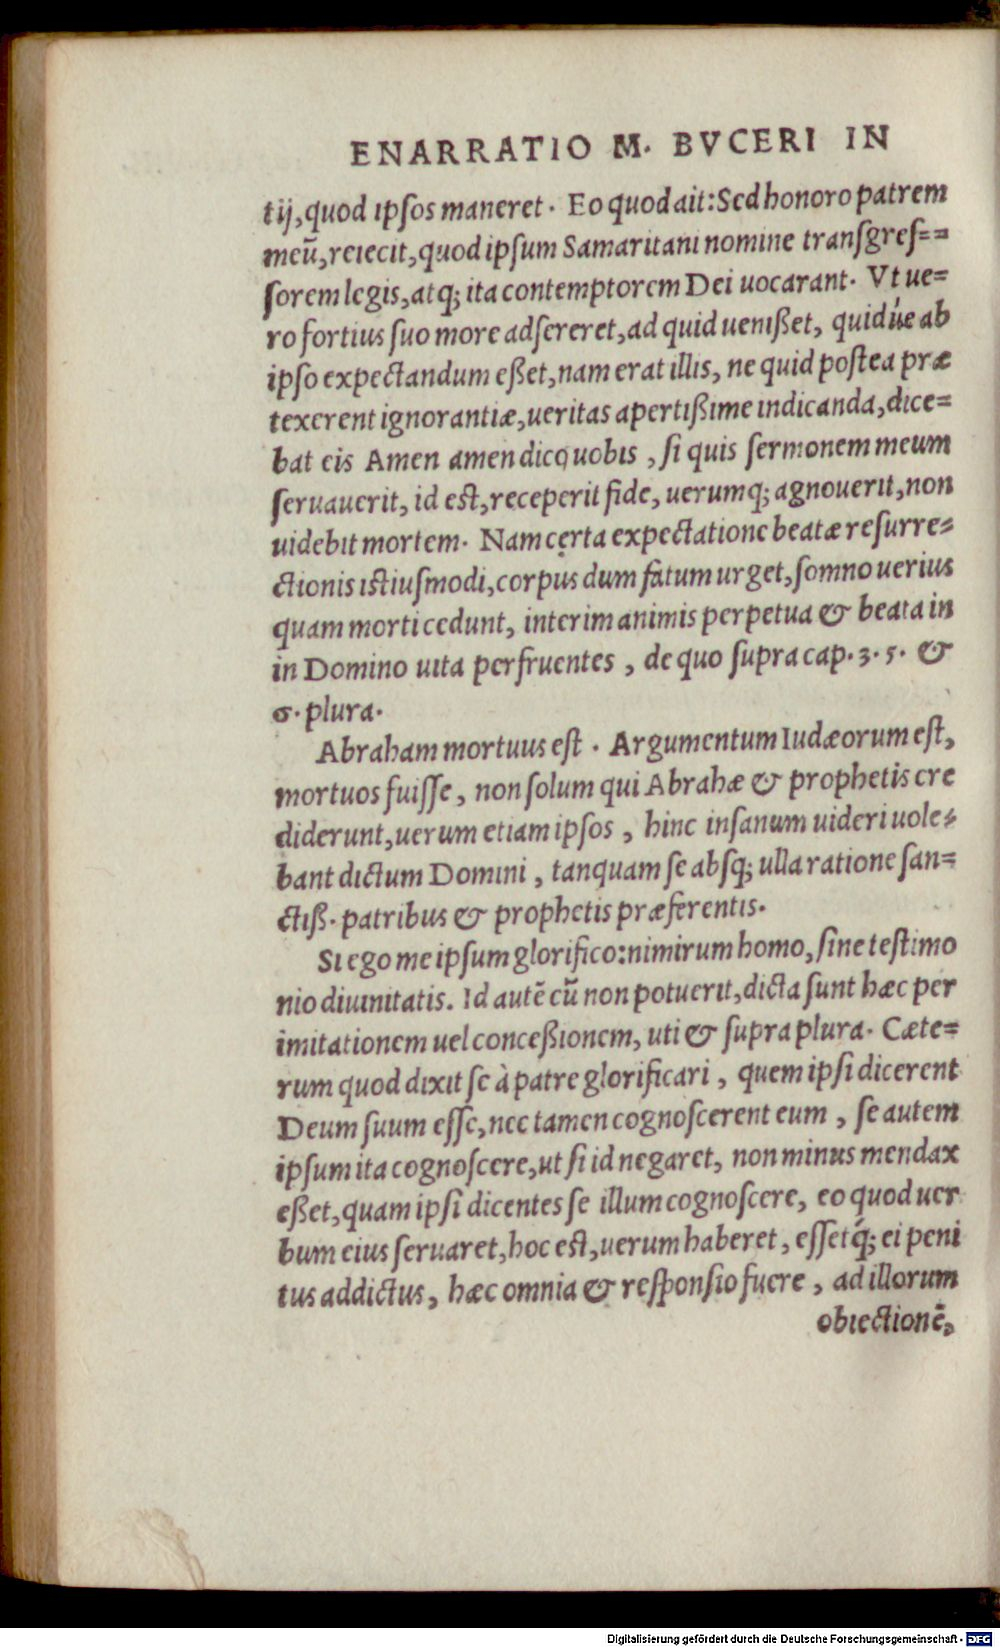 ENARRATIO M. BVCERI IN
tij, quod ipsos maneret. Eo quod ait: Sed honoro patrem
meũ, reiecit, quod ipsum Samaritani nomine transgres==
sorem legis, atq; ita contemptorem Dei uocarant. Vt ue=
ro fortius suo more adsereret, ad quid uenißet, quidúe ab
ipso expectandum eßet, nam erat illis, ne quid postea præ
texerent ignorantiæ, ueritas apertißime indicanda, dice=
bat eis Amen amen dico uobis, si quis sermonem meum
seruauerit, id est, receperit fide, uerumq; agnouerit, non
uidebit mortem. Nam certa expectatione beatæ resurre=
ctionis istiusmodi, corpus dum fatum urget, somno uerius
quam morti cedunt, interim animis perpetua & beata in
in Domino uita perfruentes, de quo supra cap. 3. 5. &
6. plura.
Abraham mortuus est. Argumentum Iudæorum est,
mortuos fuisse, non solum qui Abrahæ & prophetis cre
diderunt, uerum etiam ipsos, hinc insanum uideri uole=
bant dictum Domini, tanquam se absq; ulla ratione san=
ctiß. patribus & prophetis præferentis.
Si ego me ipsum glorifico: nimirum homo, sine testimo
nio diuinitatis. Id autẽ cũ non potuerit, dicta sunt hæc per
imitationem uel conceßionem, uti & supra plura. Cæte=
rum quod dixit se à patre glorificari, quem ipsi dicerent
Deum suum esse, nec tamen cognoscerent eum, se autem
ipsum ita cognoscere, ut si id negaret, non minus mendax
eßet, quam ipsi dicentes se illum cognoscere, eo quod uer
bum eius seruaret, hoc est, uerum haberet, essetq́; ei peni
tus addictus, hæc omnia & responsio fuere, ad illorum
obiectionẽ,
Digitalisierung gefördert durch die Deutsche Forschungsgemeinschaft - DFG